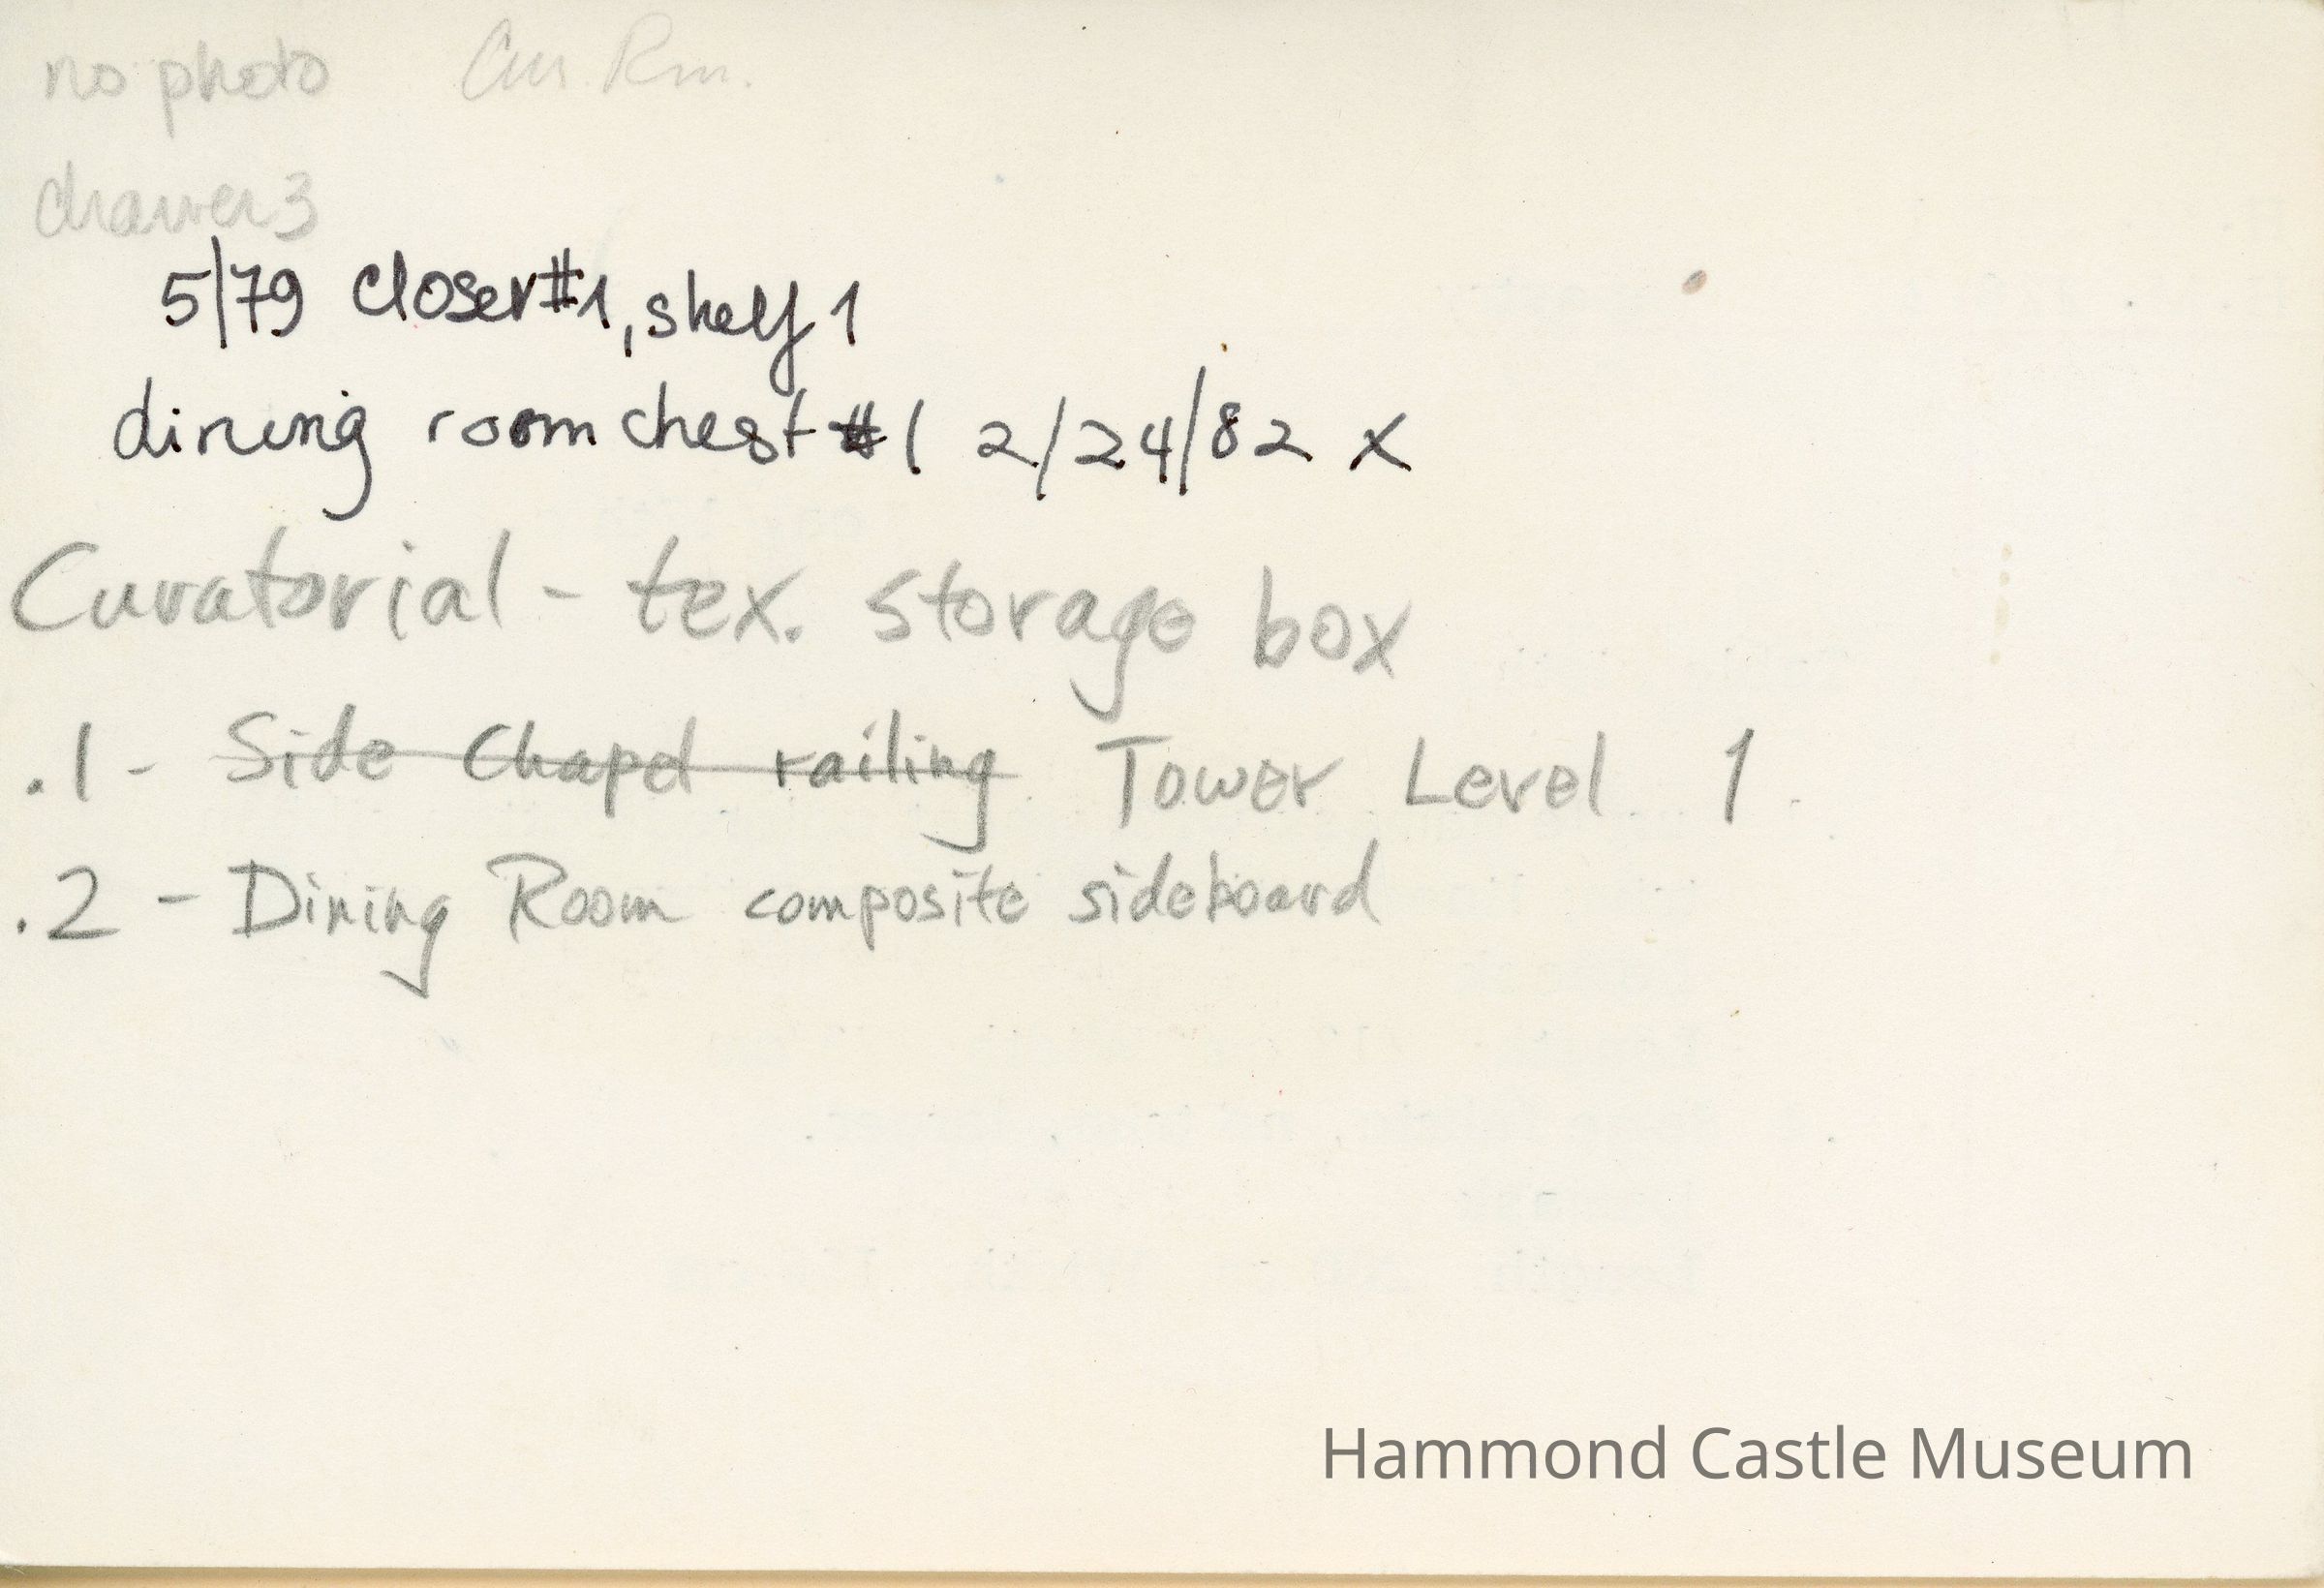 no photo Cur. Rm.
drawer 3
5/79 Closet #1, shelf 1
dining room chest #1 2/24/82 X
Curatorial - tex. storage box
.1 - Side Chapel railing Tower Level 1
.2 - Dining Room composite sideboard
Hammond Castle Museum